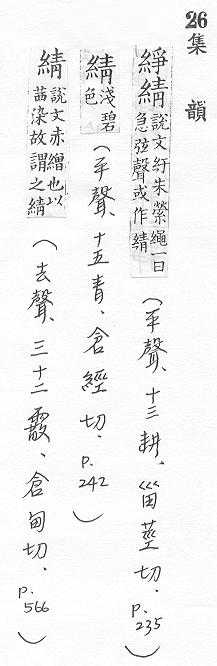 26
集韻
䋫綪
說文紆朱縈繩一曰
急弦聲或作綪
(平聲、十三耕、甾莖切.
p.
235)
綪
淺碧
色
(平聲、十五青、倉經切.
p.
242)
綪
說文赤繒也以
茜染故謂之綪
(去聲、三十二霰、倉甸切.
p.
566)